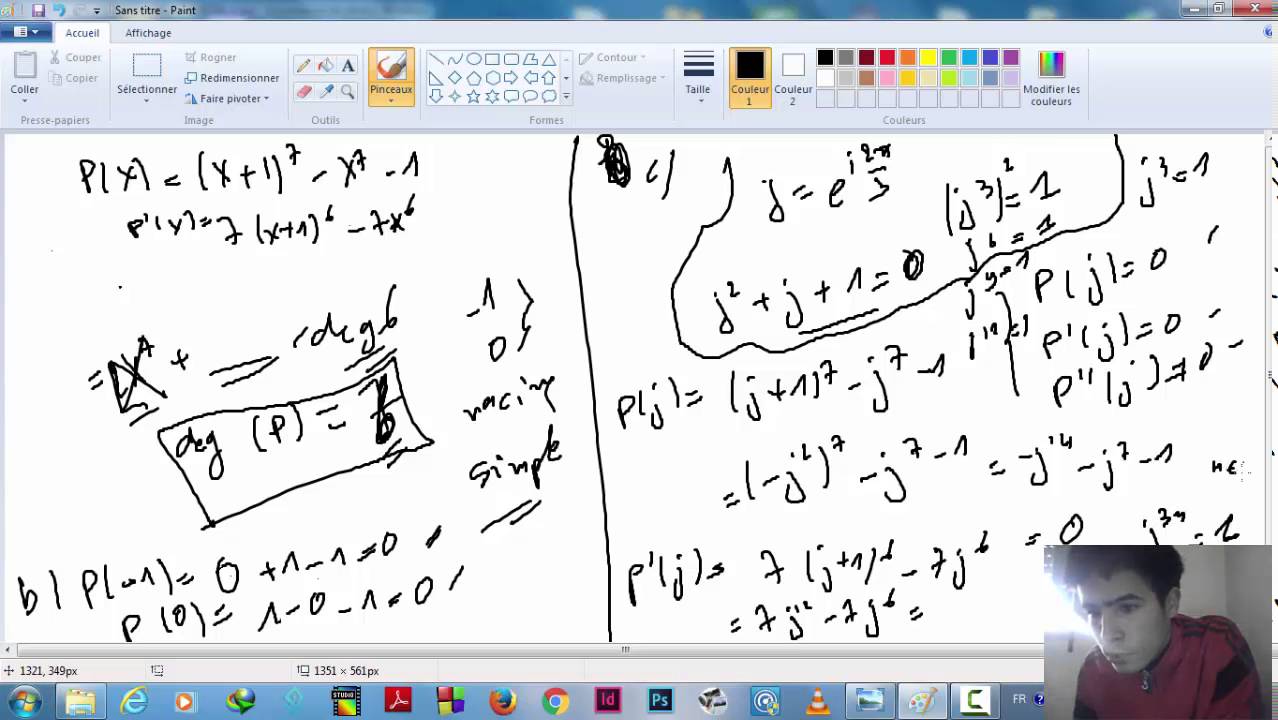 Sans titre - Paint
Accueil Affichage
Coller
Couper
Copier
Presse-papiers
Sélectionner
Rogner
Redimensionner
Faire pivoter
Image
Outils
Pinceaux
Contour
Remplissage
Formes
Taille
Couleur 1
Couleur 2
Modifier les couleurs
Couleurs
P(X) = (X+1)^7 - X^7 - 1
P'(X) = 7(X+1)^6 - 7X^6
+ deg 6
deg (P) = 6
-1
0
racine
simple
b) P(-1) = 0 + 1 - 1 = 0
P(0) = 1 - 0 - 1 = 0
c) j = e^{i 2π/3}
(j^3)^2 = 1
j^6 = 1
j^3 = 1
j^2 + j + 1 = 0
j^9 = 1
j^12 = 1
P(j) = 0
P'(j) = 0
P''(j) ≠ 0
P(j) = (j+1)^7 - j^7 - 1
= (-j^2)^7 - j^7 - 1 = -j^14 - j^7 - 1
= 0
P'(j) = 7(j+1)^6 - 7j^6
= 7j^12 - 7j^6 =
1321, 349px
1351 × 561px
STUDIO
Id
Ps
FR